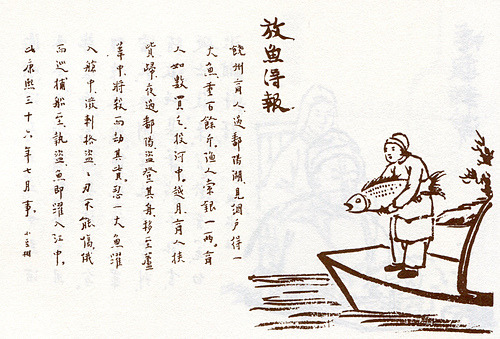 放魚得報
饒州商人過鄱陽湖見網戶得一
大魚重百餘斤漁人索銀一兩。商
人如數買之投河中。越月商人挾
貲歸夜過鄱陽盜登其舟移至蘆
葦中將殺而劫其貲。忽一大魚躍
入艙中潑剌格盜〻刃不能傷俄
而巡捕船至執盜魚即躍入江中。
此康熙三十六年七月事。